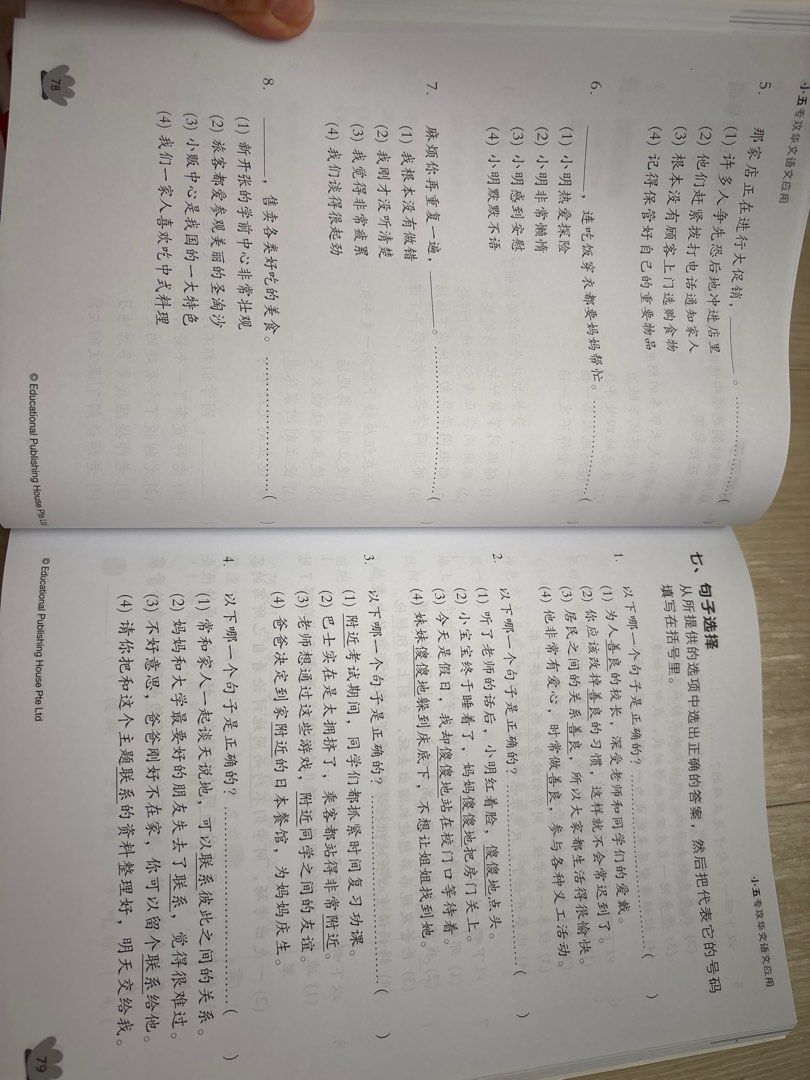 小五专攻华文语文应用
5. 那家店正在进行大促销,________。 ( )
(1) 许多人争先恐后地冲进店里
(2) 他们赶紧拨打电话通知家人
(3) 根本没有顾客上门选购食物
(4) 记得保管好自己的重要物品
6. ________,连吃饭穿衣都要妈妈帮忙。 ( )
(1) 小明热爱探险
(2) 小明非常懒惰
(3) 小明感到安慰
(4) 小明默默不语
7. 麻烦你再重复一遍,________。 ( )
(1) 我根本没有做错
(2) 我刚才没听清楚
(3) 我觉得非常疲累
(4) 我们谈得很起劲
8. ________,售卖各类好吃的美食。 ( )
(1) 新开张的学前中心非常壮观
(2) 旅客都爱参观美丽的圣淘沙
(3) 小贩中心是我国的一大特色
(4) 我们一家人喜欢吃中式料理
78
© Educational Publishing House Pte Ltd
小五专攻华文语文应用
七、句子选择
从所提供的选项中选出正确的答案,然后把代表它的号码
填写在括号里。
1. 以下哪一个句子是正确的? ( )
(1) 为人善良的校长,深受老师和同学们的爱戴。
(2) 你应该改掉善良的习惯,这样就不会常迟到了。
(3) 居民之间的关系善良,所以大家都生活得很愉快。
(4) 他非常有爱心,时常做善良,参与各种义工活动。
2. 以下哪一个句子是正确的? ( )
(1) 听了老师的话后,小明红着脸,傻傻地点头。
(2) 小宝宝终于睡着了,妈妈傻傻地把房门关上。
(3) 今天是假日,我却傻傻地站在校门口等待着。
(4) 妹妹傻傻地躲到床底下,不想让姐姐找到她。
3. 以下哪一个句子是正确的? ( )
(1) 附近考试期间,同学们都抓紧时间复习功课。
(2) 巴士实在是太拥挤了,乘客都站得非常附近。
(3) 老师想通过这些游戏,附近同学之间的友谊。
(4) 爸爸决定到家附近的日本餐馆,为妈妈庆生。
4. 以下哪一个句子是正确的? ( )
(1) 常和家人一起谈天说地,可以联系彼此之间的关系。
(2) 妈妈和大学最要好的朋友失去了联系,觉得很难过。
(3) 不好意思,爸爸刚好不在家,你可以留个联系给他。
(4) 请你把和这个主题联系的资料整理好,明天交给我。
© Educational Publishing House Pte Ltd
79